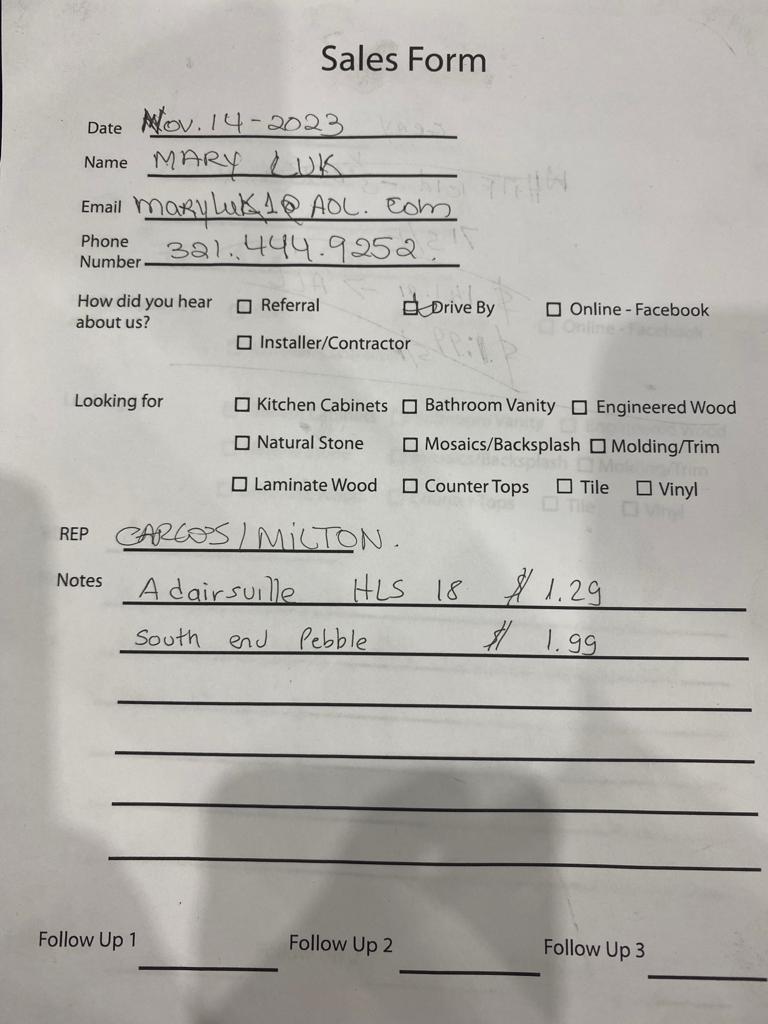 Sales Form
Date Nov. 14-2023
Name MARY LUK
Email maryluk1@AOL.com
Phone Number 321.444.9252.
How did you hear about us? ☐ Referral ☑ Drive By ☐ Online - Facebook
☐ Installer/Contractor
Looking for ☐ Kitchen Cabinets ☐ Bathroom Vanity ☐ Engineered Wood
☐ Natural Stone ☐ Mosaics/Backsplash ☐ Molding/Trim
☐ Laminate Wood ☐ Counter Tops ☐ Tile ☐ Vinyl
REP CARLOS/MILTON.
Notes Adairsville HLS 18 $ 1.29
South end Pebble $ 1.99
Follow Up 1 Follow Up 2 Follow Up 3